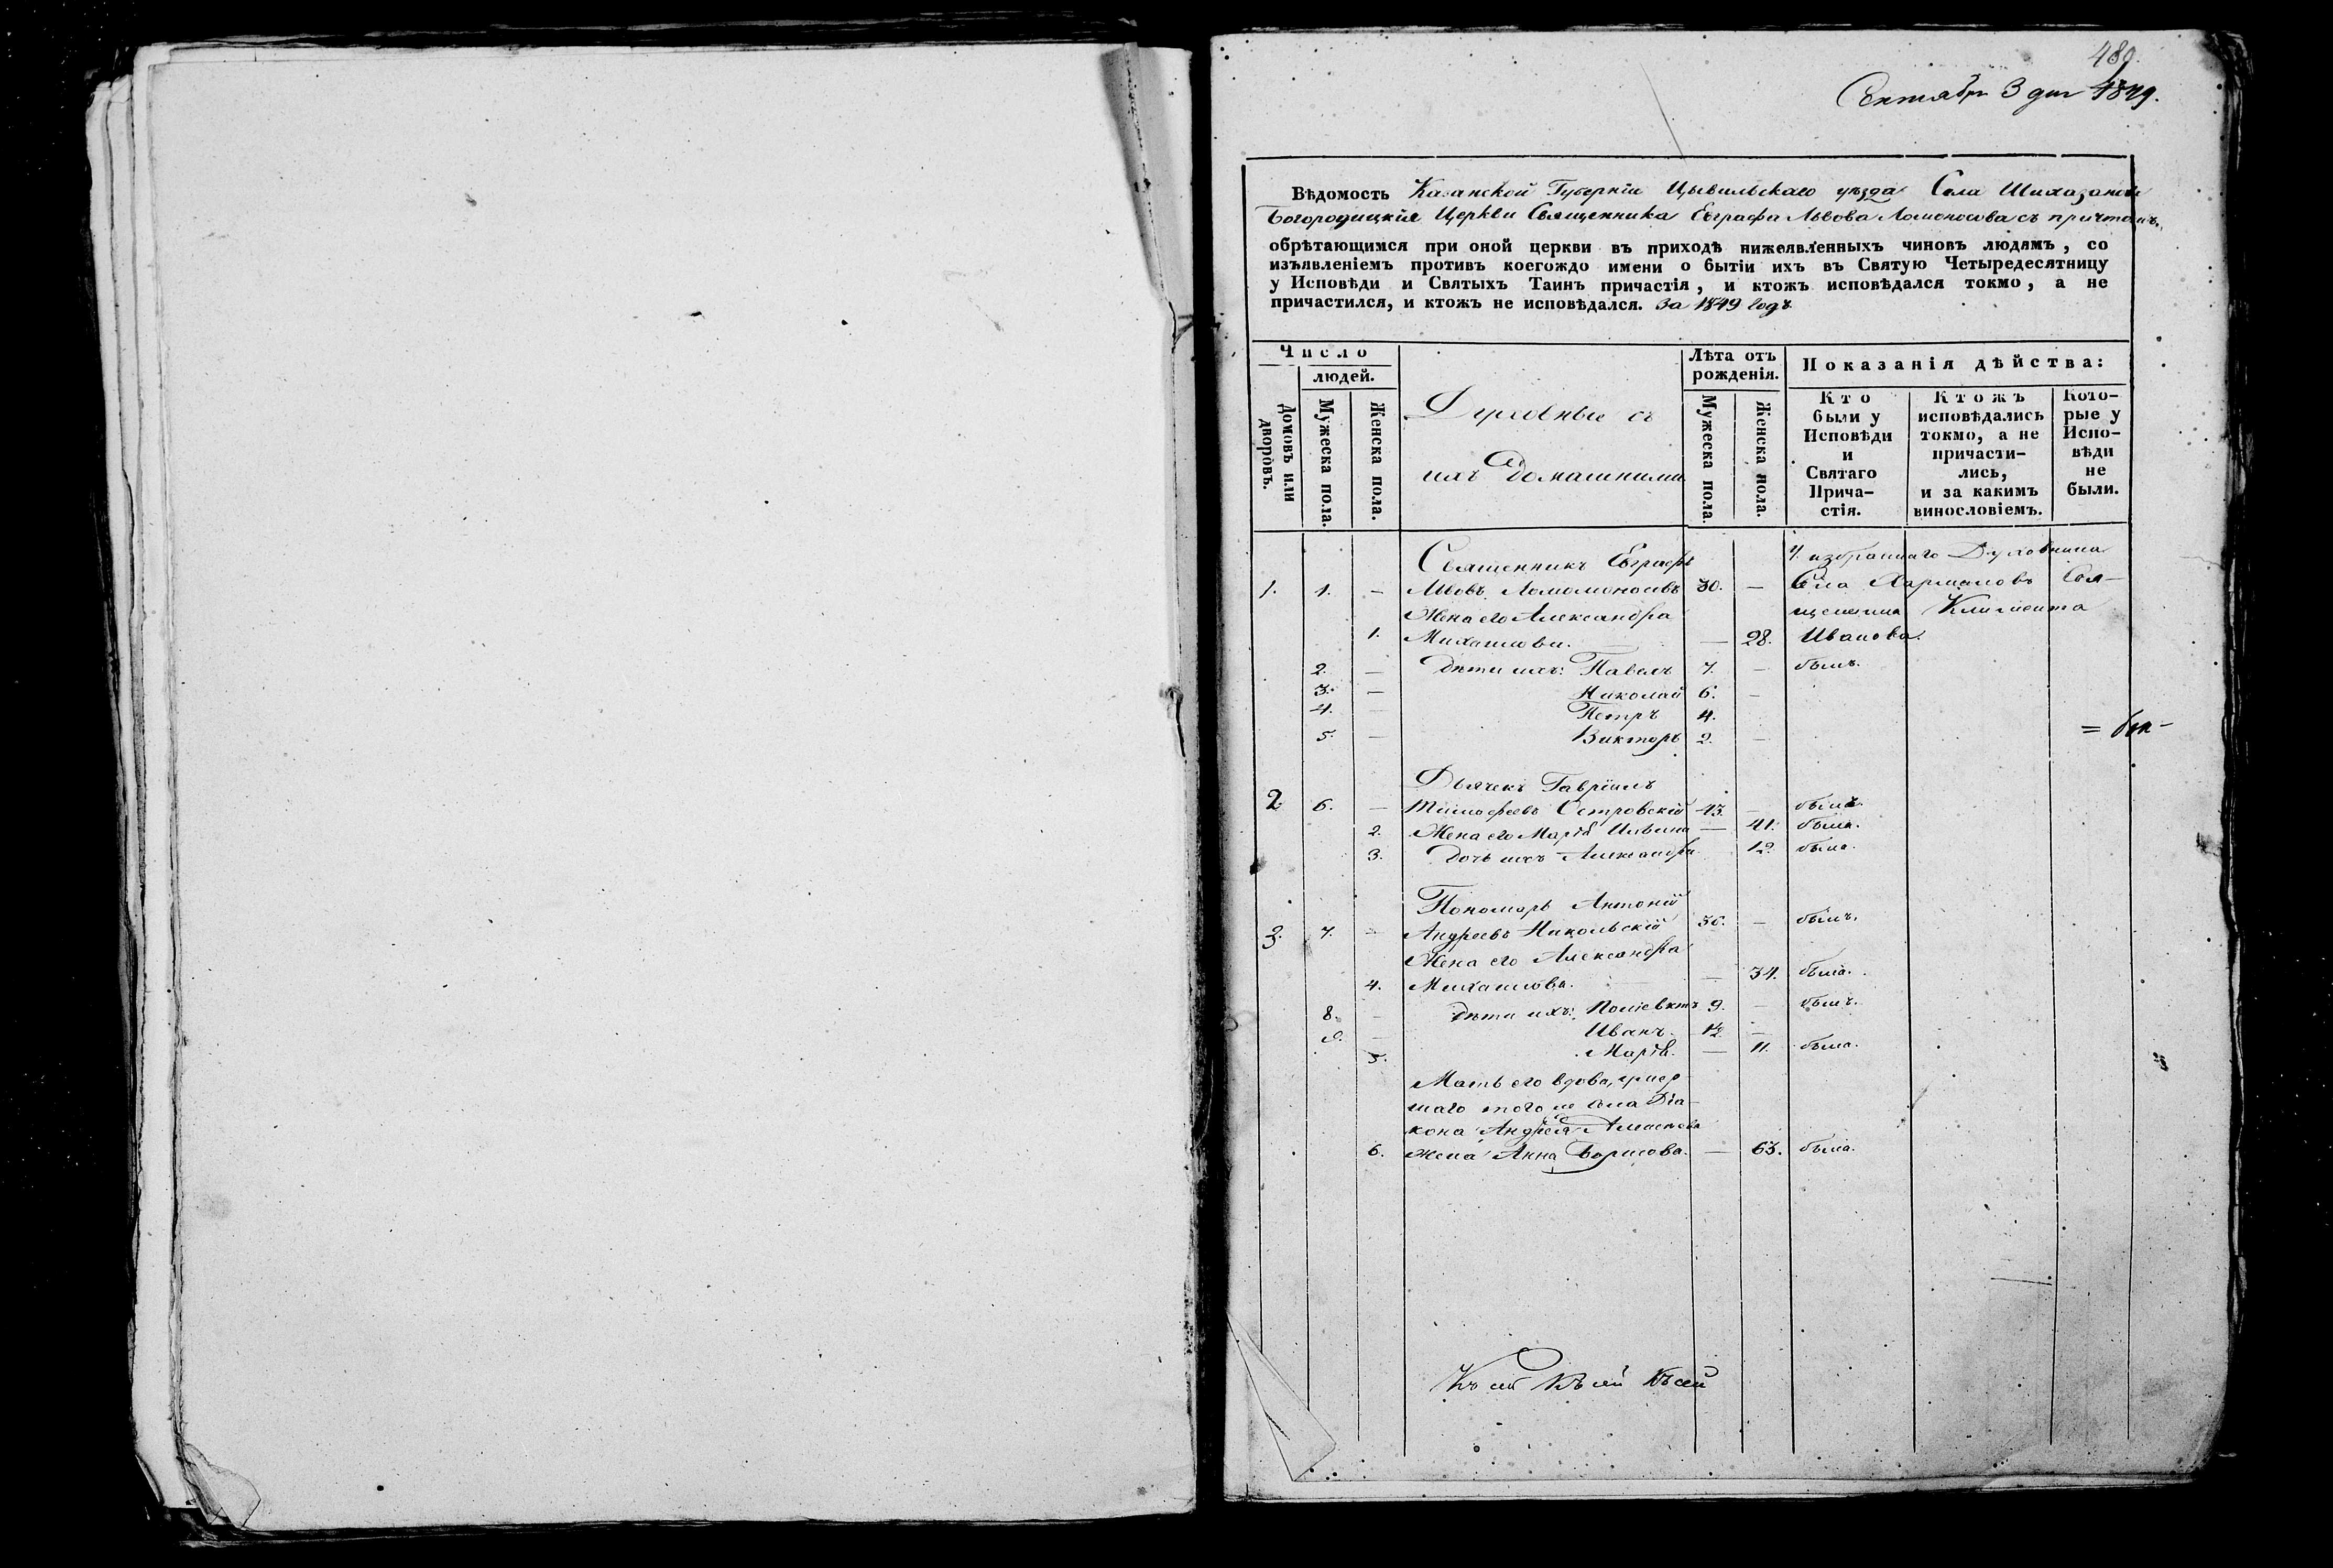 480.
Сентября 3 дня 1849.
Вѣдомость Казанской Губерніи Цывильскаго уѣзда Села Шихазановъ
Богородицкія Церкви Священника Евграфа Львова Ломоносова съ причтомъ,
обрѣтающимся при оной церкви въ приходѣ нижеявленныхъ чиновъ людямъ, со
изъявленіемъ противъ коегождо имени о бытіи ихъ въ Святую Четыредесятницу
у Исповѣди и Святыхъ Таинъ причастія, и ктожъ исповѣдался токмо, а не
причастился, и ктожъ не исповѣдался. За 1849 Годъ
Число
людей.
Домовъ или дворовъ.
Мужеска пола.
Женска пола.
Духовные съ
ихъ Домашними
Лѣта отъ
рожденія.
Мужеска пола.
Женска пола.
Показанія дѣйства:
Кто
были у
Исповѣди
и
Святаго
Прича-
стія.
Ктожъ
исповѣдались
токмо, а не
причасти-
лись,
и за какимъ
винословіемъ.
Кото-
рые у
Испо-
вѣди
не
были.
Священникъ Евграфъ У избраннаго Духовника
1. 1. — Львовъ Ломоносовъ 30. — Села Свя-
Жена его Александра щенника Климента
1. Михаилова. — 28. Иванова.
2. — Дѣти ихъ: Павелъ 7. — былъ.
3. — Николай 6. —
4. — Петръ 4.
5. — Викторъ 2. —
Дьячекъ Гавріилъ
2 6. — Тимофеевъ Островскій 43. — былъ.
2. Жена его Марѳа Ильина — 41. была.
3. Дочь ихъ Александра. 12. была.
Пономарь Антоній
3. 7. — Андреевъ Никольскій 36. — былъ.
Жена его Александра
4. Михаилова. — 34. была.
8. — Дѣти ихъ: Поліевктъ 9. — былъ.
9. — Иванъ. —
5. Марѳа. — 11. была.
Мать его вдова, умер
шаго того же села Діа-
кона Андрея
6. жена Анна Борисова. — 63. была.